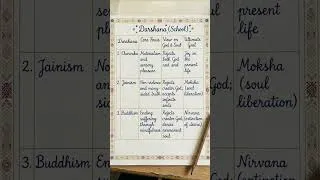 Darshana (School)
Darshana
Core Focus
View on
God & Soul
Ultimate
Goal
1. Charvaka
Materialism
and
sensory
pleasure
Rejects
both God
and soul
Joy in
the
present
life
2. Jainism
Non-violence
and many-
sided truth
Rejects
creator God;
accepts
infinite
souls
Moksha
(soul
liberation)
3. Buddhism
Ending
suffering
through
mindfulness
Rejects
creator God;
denies
permanent
soul
Nirvana
(extinction
of desire)
2. Jainism
3. Buddhism
present
life
Moksha
(soul
liberation)
Nirvana